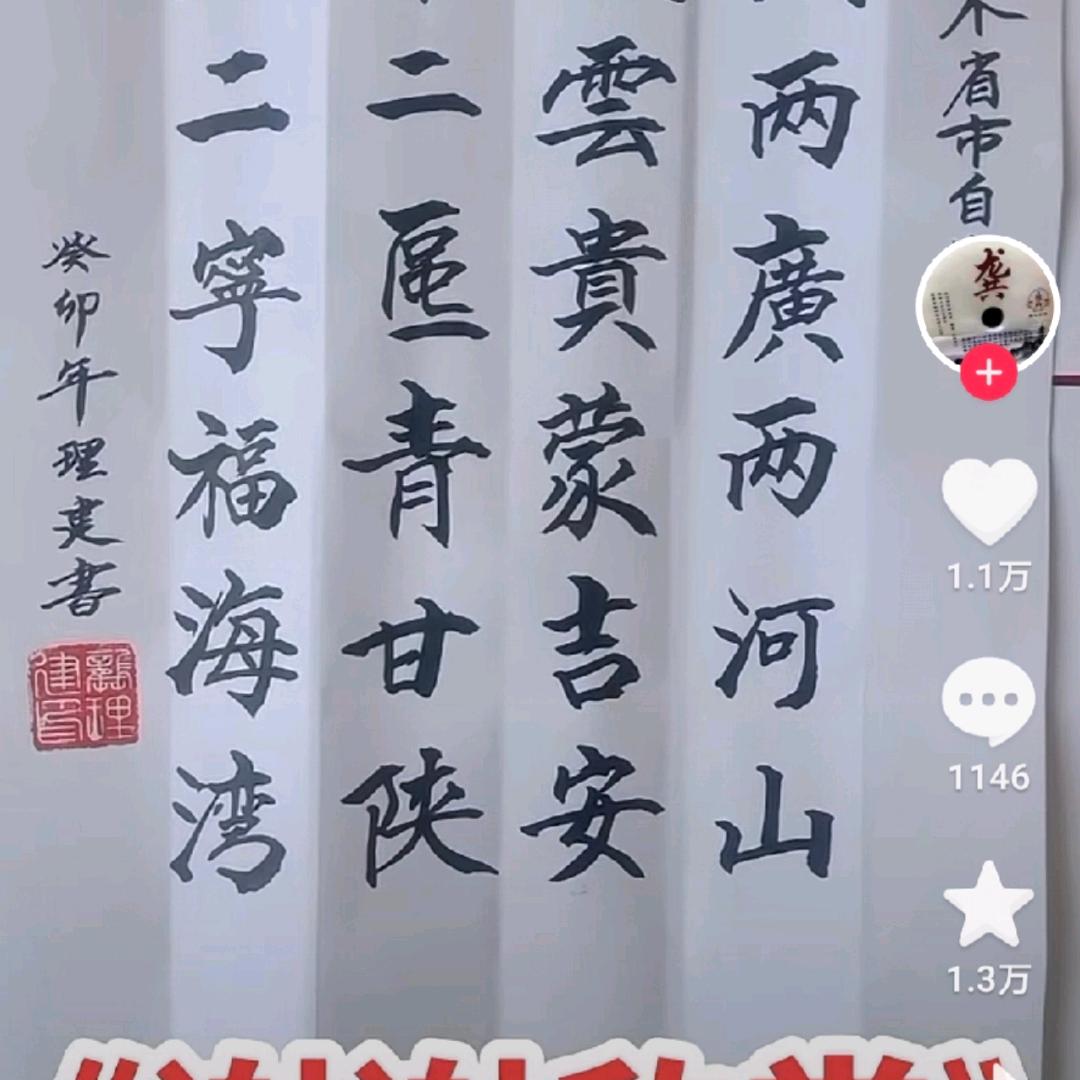 省市自
两廣两河山
雲貴蒙吉安
二青甘陕
二寧福海湾
癸卯年理建書
龔理建印
龚
1.1万
1146
1.3万